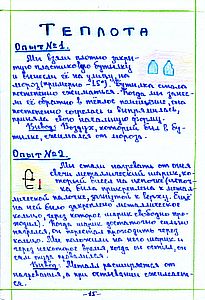 ТЕПЛОТА
Опыт №1.
Мы взяли плотно закры-
тую пластиковую бутылку
и вынесли её на улицу, на
мороз (примерно -15°). Бутылка стала
постепенно сжиматься. Когда мы занес-
ли её обратно в теплое помещение, она
постепенно согрелась и выпрямилась,
приняв свою начальную форму.
Вывод: Воздух, который был в бу-
тылке, сжимался от мороза.
Опыт №2.
Мы стали нагревать от огня
свечи металлический шарик, ко-
торый висел на цепочке (цепоч-
ка была прикреплена к метал-
лической палочке, загнутой к верху. Ещё
на ней было закреплено металлическое
кольцо, через которое шарик свободно про-
ходил). Когда шарик достаточно сильно
нагрелся, он перестал проходить через
кольцо. Мы положили на него шарик и
через некоторое время, когда он остыл, он
сам туда провалился.
Вывод: Металл расширяется от
нагревания, а при остывании сжимает-
ся.
-15-